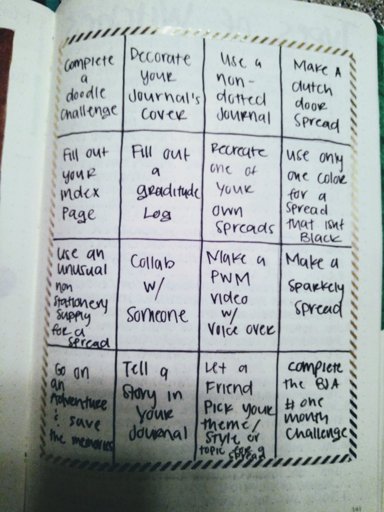 Complete
a
doodle
Challenge
Decorate
your
Journal's
Cover
Use a
non-
dotted
Journal
Make A
dutch
door
Spread
Fill out
your
index
Page
Fill out
a
graditude
Log
Recreate
one of
your
own
Spreads
use only
one color
for a
Spread
that isnt
Black
use an
unusual
non
Stationery
Supply
for a
spread
Collab
w/
Someone
Make a
PWM
video
w/
Voice over
Make a
Sparkely
Spread
Go on
an
Adventure
& save
the memories
Tell a
Story in
your
Journal
Let a
Friend
Pick your
theme/
Style or
topic for a
spread
complete
the BJA
# one
month
Challenge